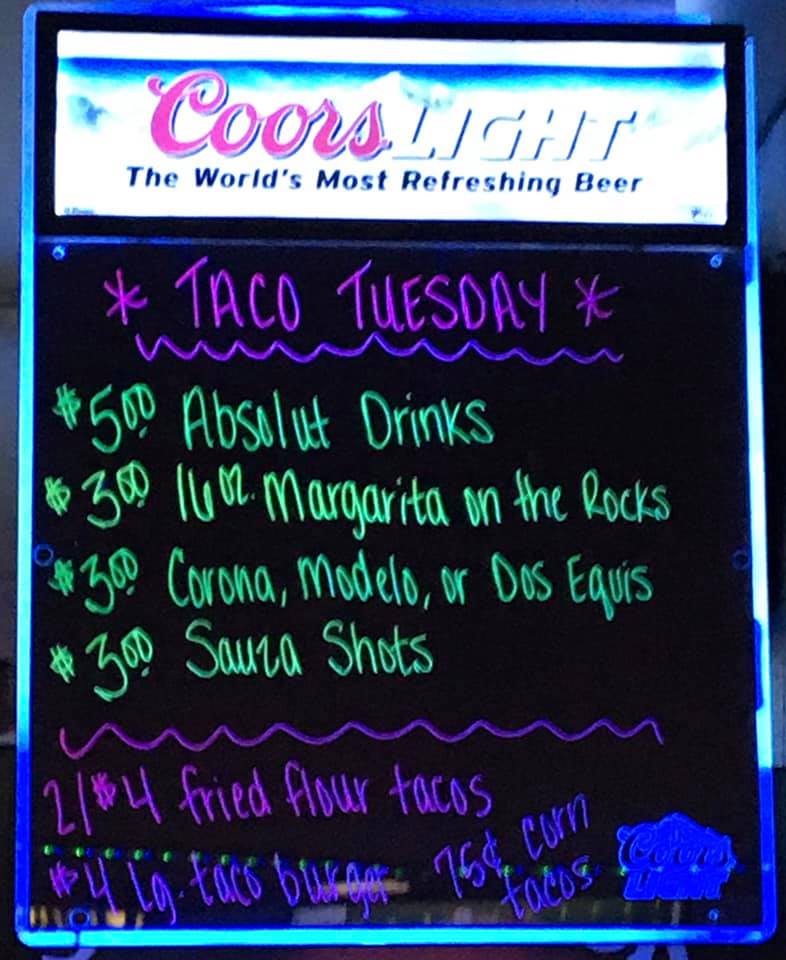 Coors LIGHT
The World's Most Refreshing Beer
* TACO TUESDAY *
$5.00 Absolut Drinks
$3.00 16 oz. Margarita on the Rocks
$3.00 Corona, Modelo, or Dos Equis
$3.00 Sauza Shots
2/$4 fried flour tacos
$4 lg. taco burger
75¢ corn
tacos
Coors
LIGHT